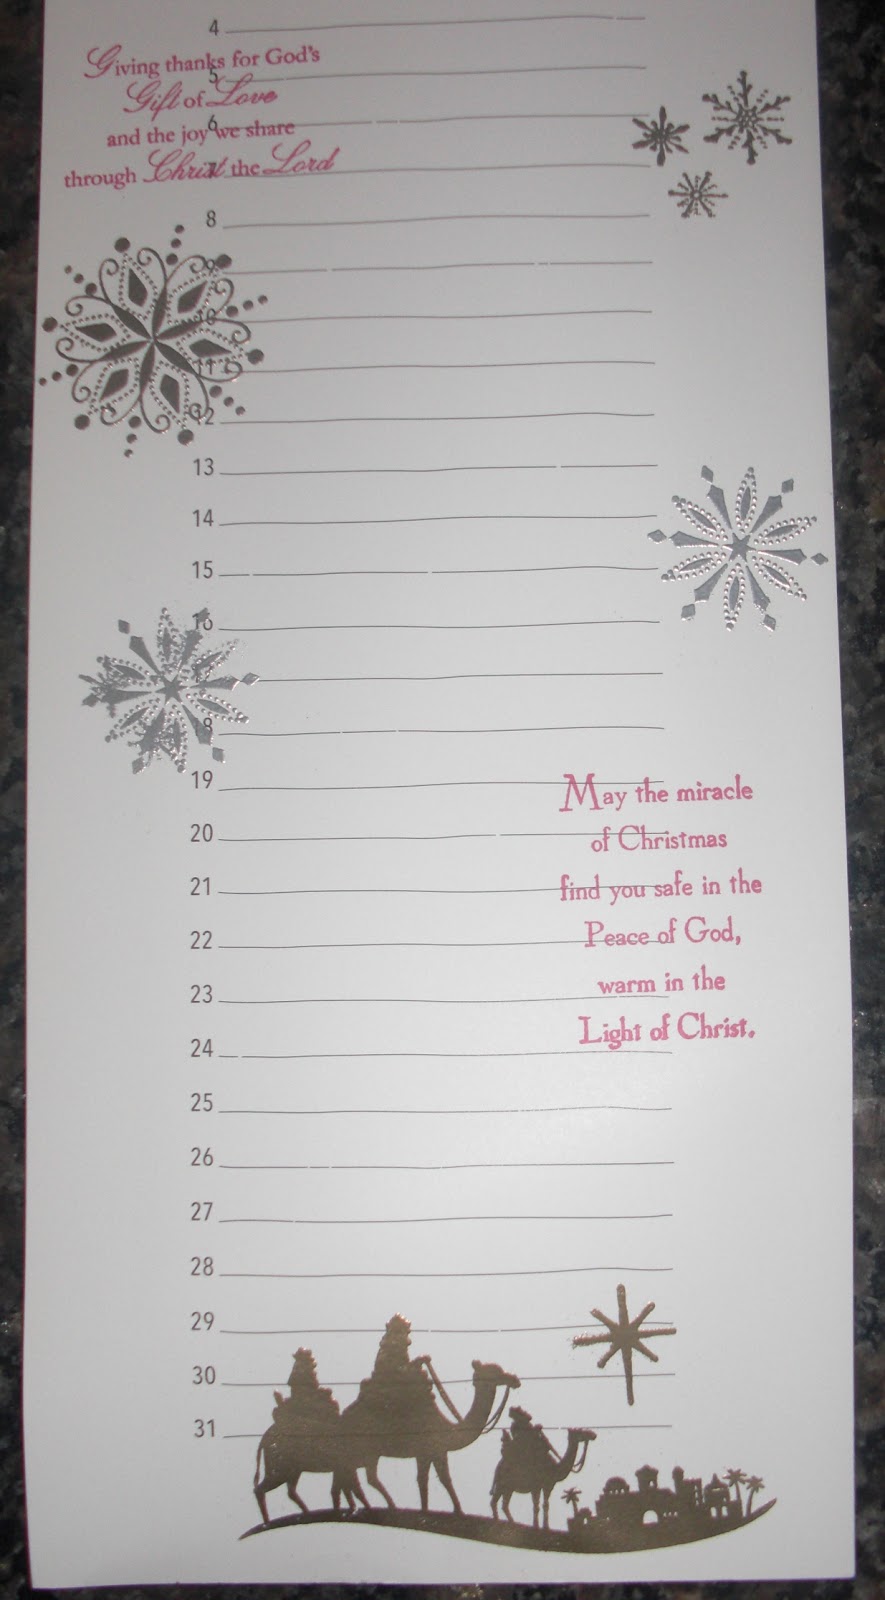 4
Giving thanks for God's
5
Gift of Love
6
and the joy we share
7
through Christ the Lord
8
9
10
11
12
13
14
15
16
17
18
19
May the miracle
20
of Christmas
21
find you safe in the
22
Peace of God,
23
warm in the
Light of Christ.
24
25
26
27
28
29
30
31